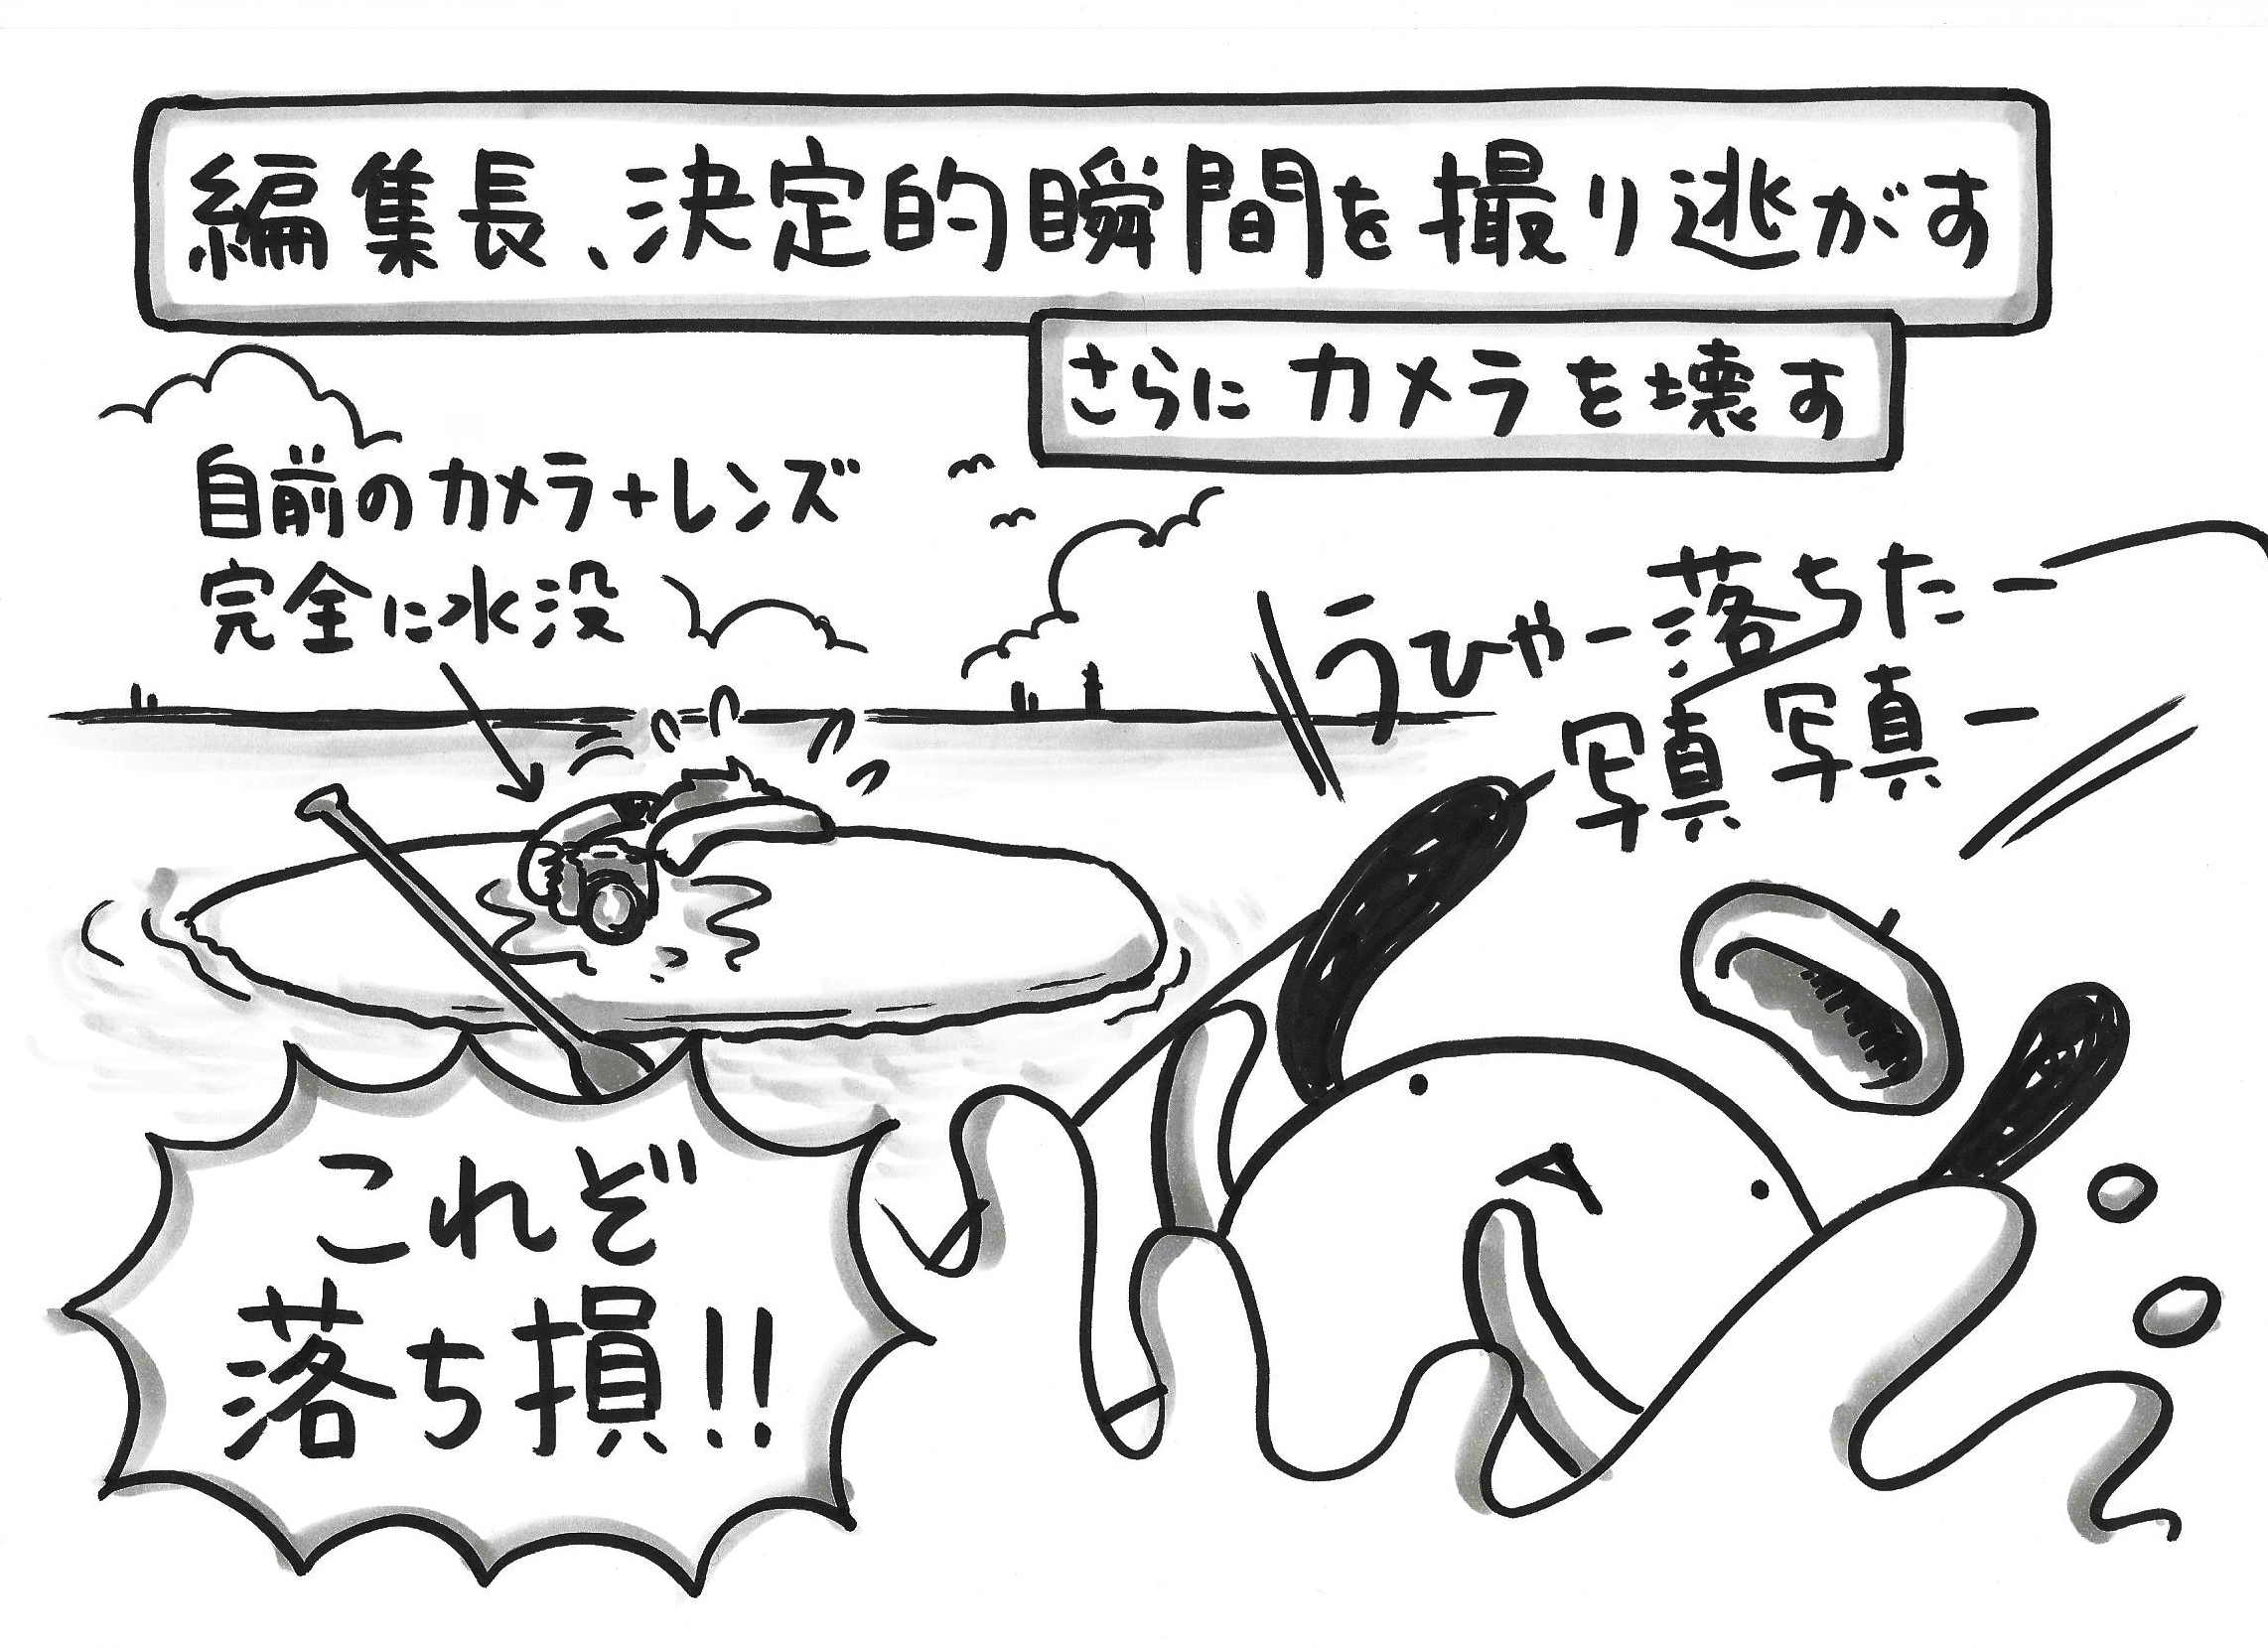 編集長、決定的瞬間を撮り逃がす
さらにカメラを壊す
自前のカメラ+レンズ
完全に水没
うひゃー落ちたー
写真写真ー
これぞ
落ち損!!